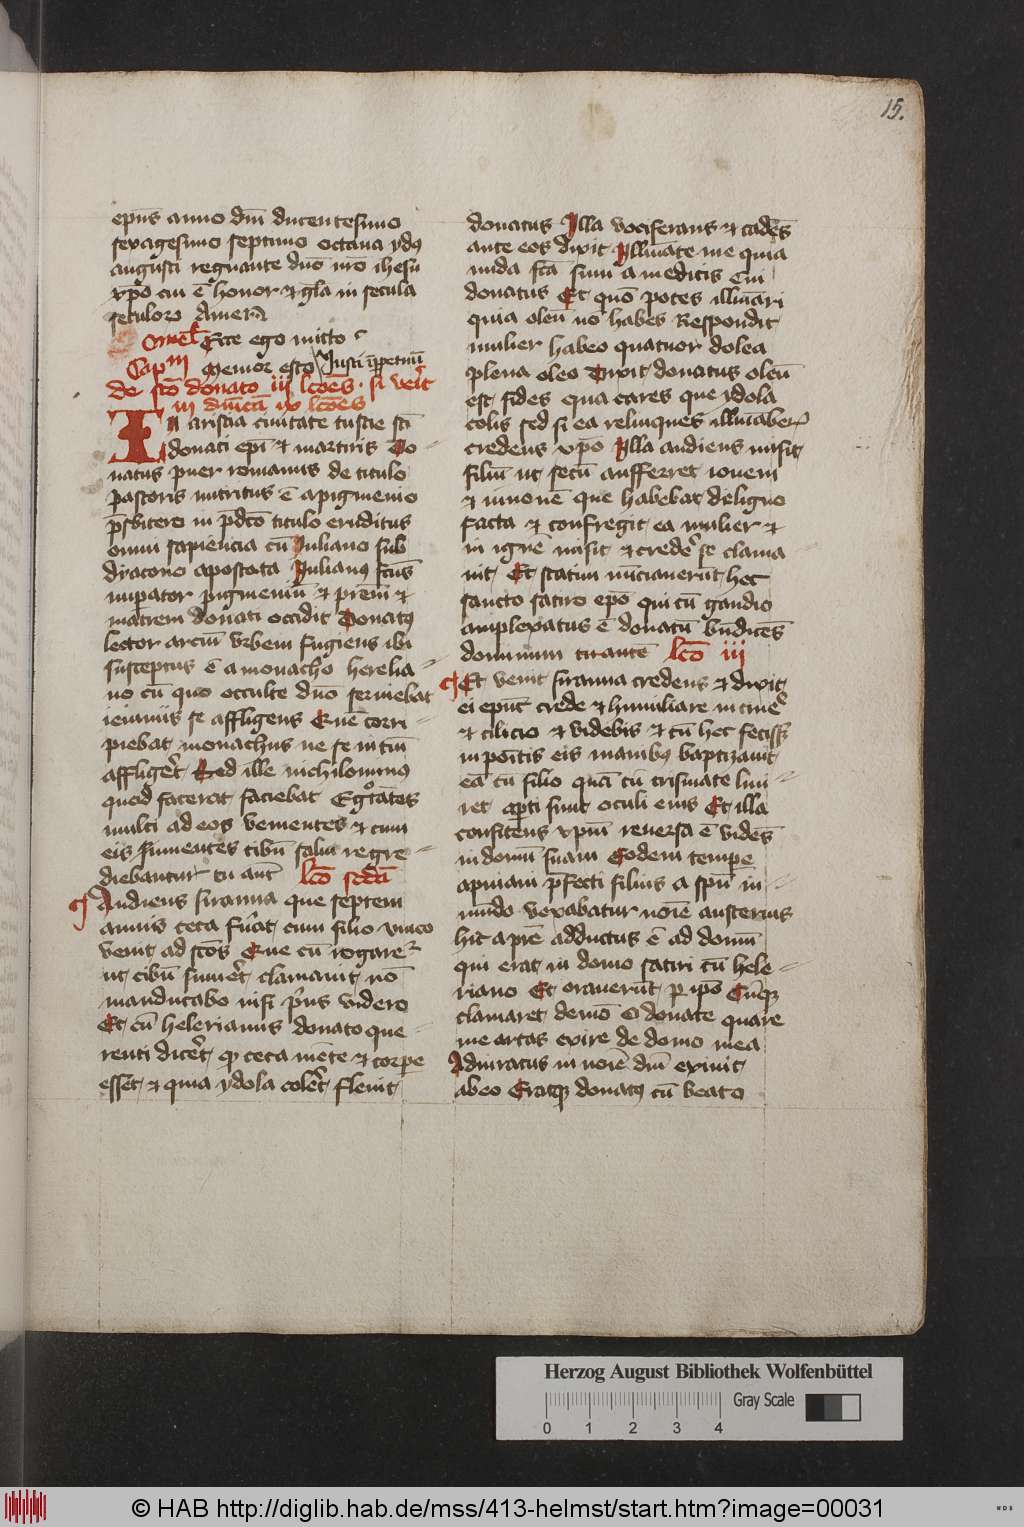 15.
epūs anno dm̄ ducentesimo
sexagesimo septimo octaua ydꝰ
augusti regnante dn̄o nr̄o ihesu
xp̄o cui ē honor et gl̄a in secula
seculorꝫ Amen
Ecce ego mitto
Cap Memor esto Iusti īperpetuū
de sc̄o donato iii lc̄oēs si ven̄it
in dn̄icā ix lc̄oēs
In aristia ciuitate tuscie sc̄i
donati ep̄i et martiris Do-
natus puer romanus de titulo
pastoris nutritus ē a pigmenio
p̄sbitero in p̄dc̄o titulo eruditus
omni sapiencia cū Iuliano sub
dyacono apostata Iulianꝰ fc̄us
imperator pigmeniū et prēm et
matrem donati occidit Donatꝰ
lector arciū vrbem fugiens ibi
susceptus ē a monacho herelia-
no cū quo occulte dn̄o seruiebat
ieiuniis se affligens Quē corri-
piebat monachus ne se in tm̄
affliger̄t Sed ille nichilominꝰ
quod facerat faciebat Egrotātes
multi ad eos venientes et cum
eis sumentes cibū salui regre-
diebantur tu aut̄ lc̄o sc̄dā
Audiens siranna que septem
annis ceca fūat cum filio vnico
venit ad sc̄os Que cū rogaret̄
ut cibū sumer̄t clamauit nō
manducabo nisi p̄us videro
Et cū helerianus donato que-
renti dicer̄t qꝫ ceca mēte et corpe
esset et quia ydola coler̄t fleuit
donatus Illa vociferans et cadēs
ante eos dixit Illuīate me quia
nuda fc̄a sum a medicis Cui
donatus Et quō potes illuīari
quia oleū nō habes Respondit
mulier habeo quatuor dolea
plena oleo Dixit donatus oleū
est fides qua cares que ydola
colis sed si ea relinques illuīaberꝭ
credens xp̄o Illa audiens misit
filiū ut secū aufferret iouem
et iunonē que habebat de ligno
facta et confregit ea mulier et
in ignē misit et creder̄ se clama-
uit Et statim nūciauerūt hec
sancto satiro epō qui cū gaudio
amplexatus ē donatū bn̄dicēs
dominum tirantē lc̄o iii
Et venit siranna credens et dixit
ei epūs crede et humiliare in cinē
et cilicio et videbis et cū hec fecisset
inpoītis eis manibꝰ baptizauit
eā cū filio quā cū crismate lini-
ret apti sunt oculi eius Et illa
confitens xpm̄ reuersa ē vidēs
in domū suam Eodem tempe
apiniani p̄fecti filius a spū in-
mūdo vexabatur noīe austerius
hic a prē adductus ē ad domū
qui erat in domo satiri cū hele-
riano Et orauerūt p ipō Cūqꝫ
clamaret demō O donate quare
me artas exire de domo mea
Adiuratus in noīe dn̄i exiuit
ab eo Eratqꝫ donatꝰ cū beato
Herzog August Bibliothek Wolfenbüttel
Gray Scale
0 1 2 3 4
© HAB http://diglib.hab.de/mss/413-helmst/start.htm?image=00031